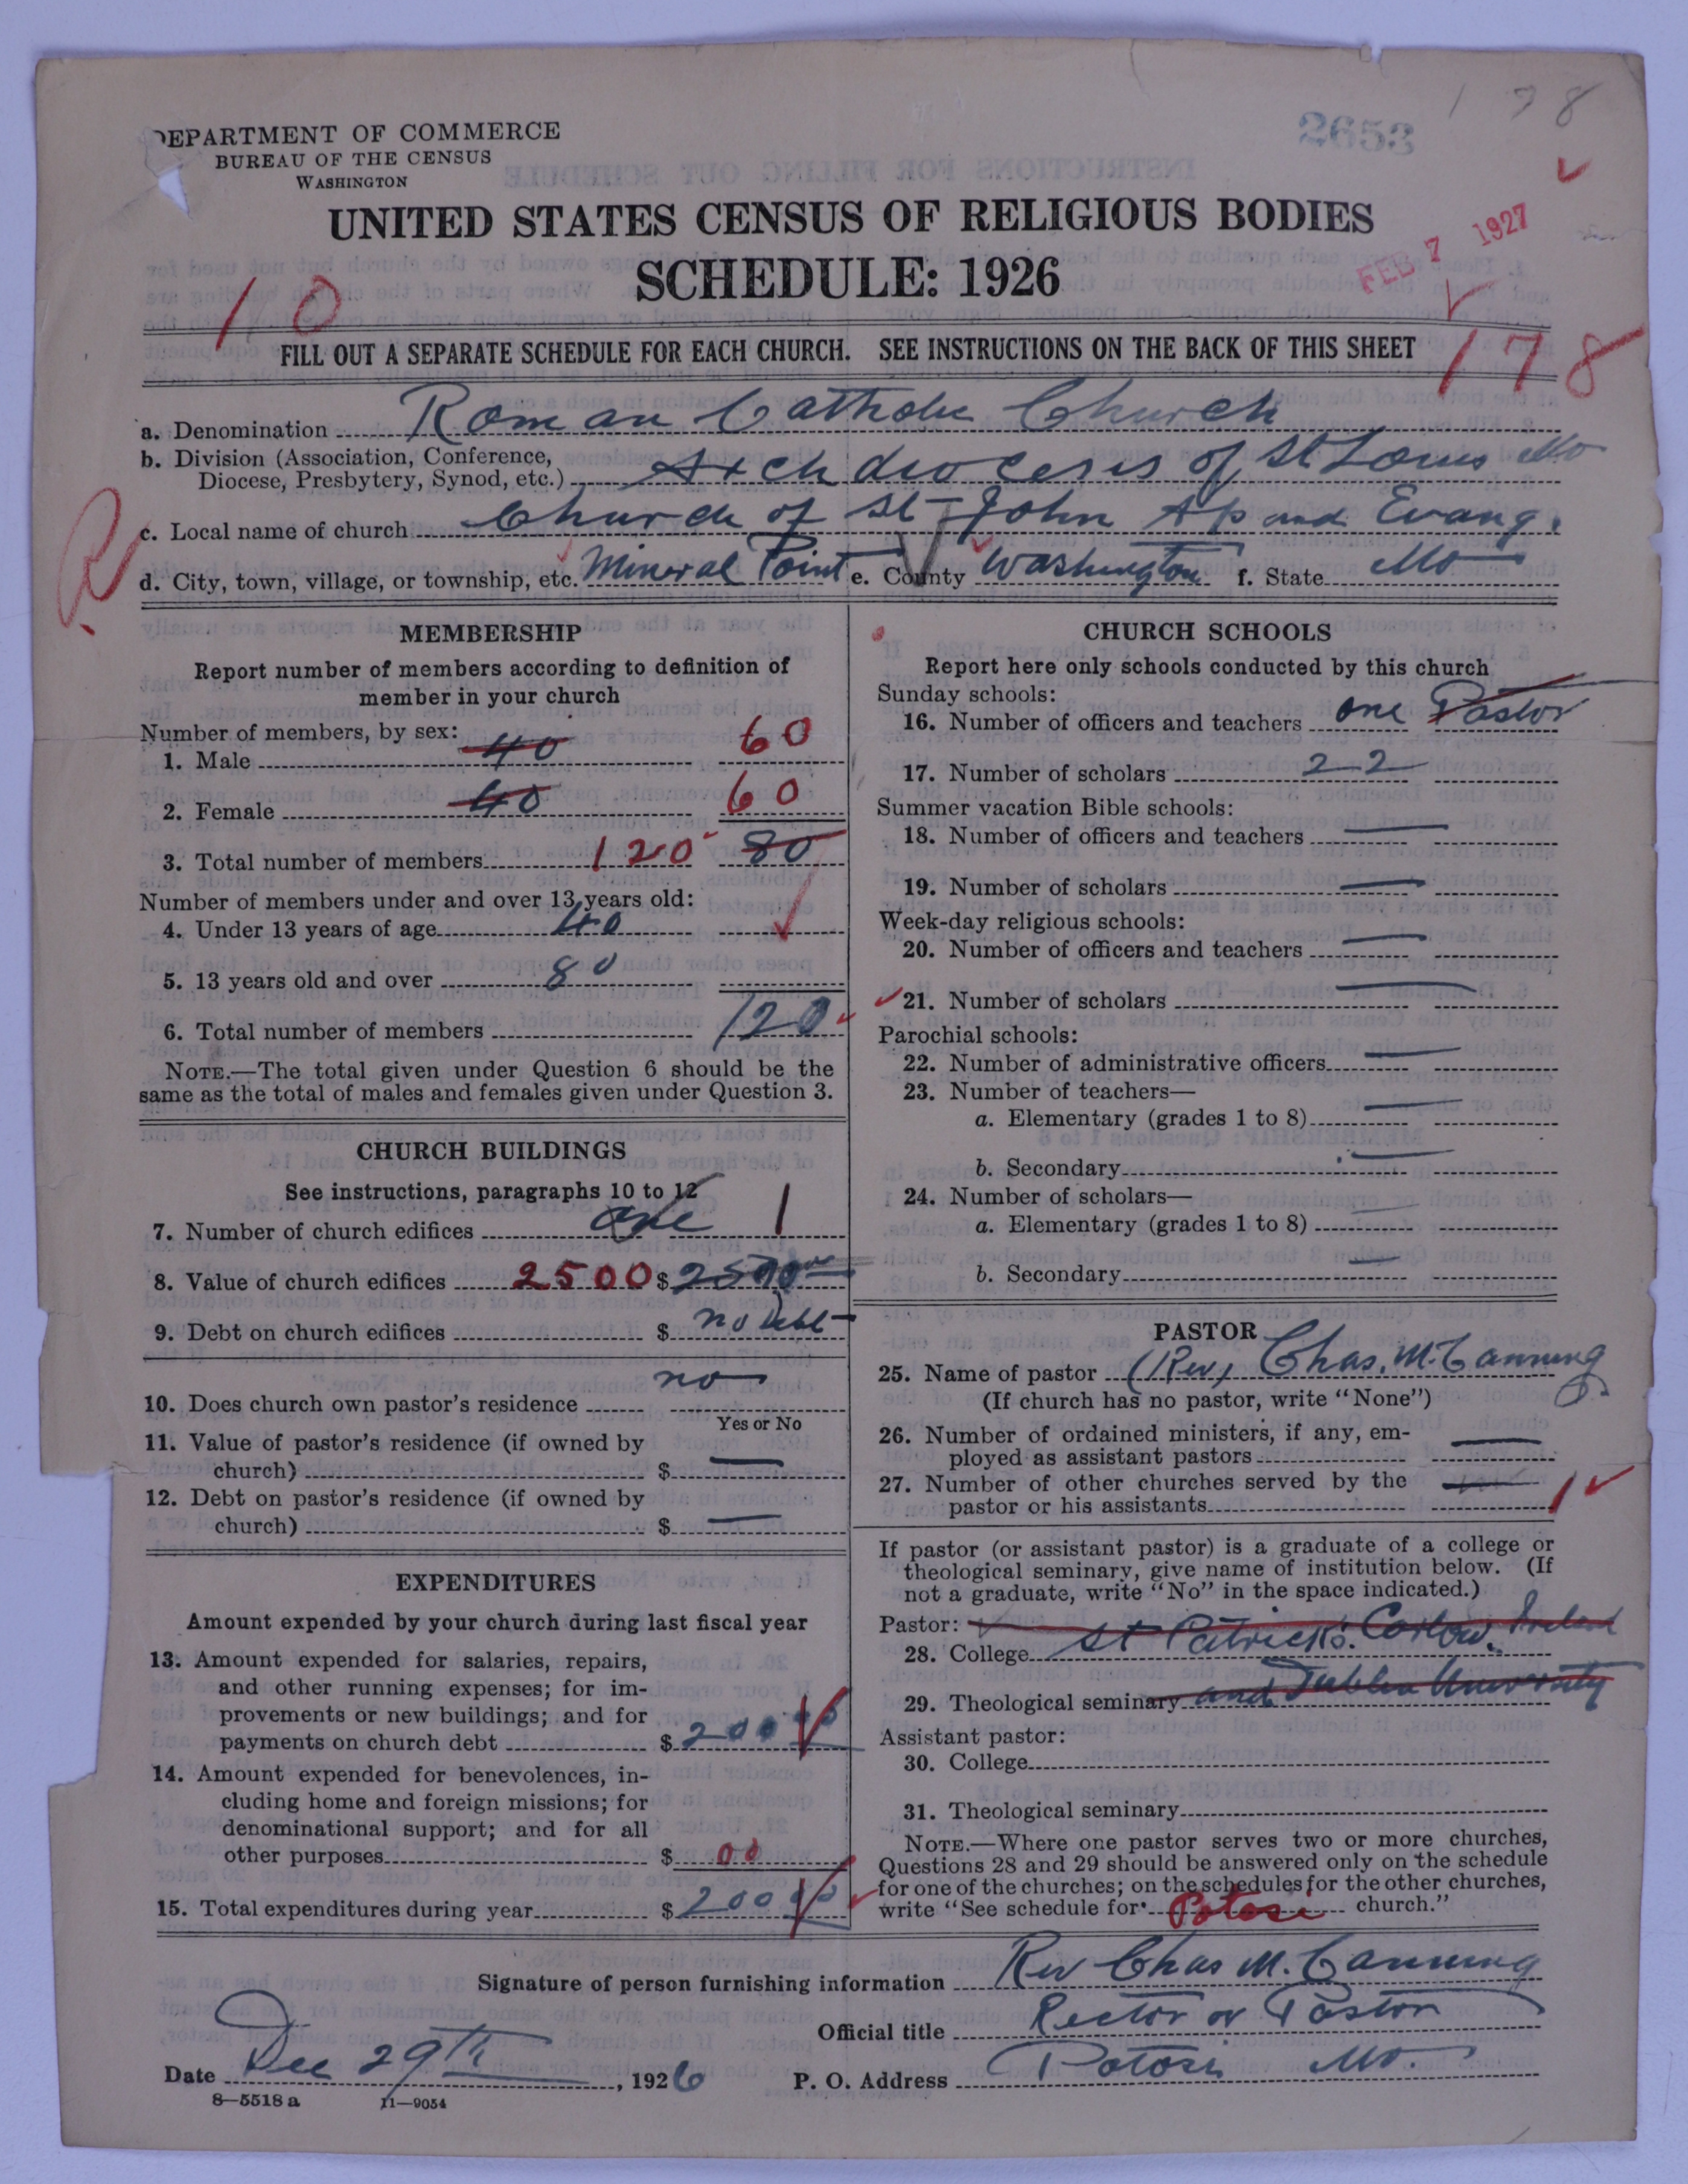 1 78
2653
DEPARTMENT OF COMMERCE
BUREAU OF THE CENSUS
WASHINGTON
UNITED STATES CENSUS OF RELIGIOUS BODIES
SCHEDULE: 1926
FEB 7 1927
10
FILL OUT A SEPARATE SCHEDULE FOR EACH CHURCH. SEE INSTRUCTIONS ON THE BACK OF THIS SHEET
178
a. Denomination Roman Catholic Church
b. Division (Association, Conference,
Diocese, Presbytery, Synod, etc.) Archdiocesis of St Louis Mo
c. Local name of church Church of St John Ap and Evang.
d. City, town, village, or township, etc. Mineral Point e. County Washington f. State Mo
MEMBERSHIP
Report number of members according to definition of
member in your church
Number of members, by sex:
1. Male 40 60
2. Female 40 60
3. Total number of members 120 80
Number of members under and over 13 years old:
4. Under 13 years of age 40
5. 13 years old and over 80
6. Total number of members 120
NOTE.—The total given under Question 6 should be the
same as the total of males and females given under Question 3.
CHURCH BUILDINGS
See instructions, paragraphs 10 to 12
7. Number of church edifices one 1
8. Value of church edifices 2500 $ 2500
9. Debt on church edifices $ no Debt
10. Does church own pastor's residence no
Yes or No
11. Value of pastor's residence (if owned by
church) $ —
12. Debt on pastor's residence (if owned by
church) $ —
EXPENDITURES
Amount expended by your church during last fiscal year
13. Amount expended for salaries, repairs,
and other running expenses; for im-
provements or new buildings; and for
payments on church debt $ 200
14. Amount expended for benevolences, in-
cluding home and foreign missions; for
denominational support; and for all
other purposes $ 00
15. Total expenditures during year $ 200
CHURCH SCHOOLS
Report here only schools conducted by this church
Sunday schools:
16. Number of officers and teachers one Pastor
17. Number of scholars 22
Summer vacation Bible schools:
18. Number of officers and teachers —
19. Number of scholars —
Week-day religious schools:
20. Number of officers and teachers —
21. Number of scholars —
Parochial schools:
22. Number of administrative officers —
23. Number of teachers—
a. Elementary (grades 1 to 8) —
b. Secondary —
24. Number of scholars—
a. Elementary (grades 1 to 8) —
b. Secondary —
PASTOR
25. Name of pastor (Rev) Chas. M. Canning
(If church has no pastor, write "None")
26. Number of ordained ministers, if any, em-
ployed as assistant pastors —
27. Number of other churches served by the
pastor or his assistants — 1
If pastor (or assistant pastor) is a graduate of a college or
theological seminary, give name of institution below. (If
not a graduate, write "No" in the space indicated.)
Pastor:
28. College St Patrick's. Carlow. Ireland
29. Theological seminary and Dublin University
Assistant pastor:
30. College
31. Theological seminary
NOTE.—Where one pastor serves two or more churches,
Questions 28 and 29 should be answered only on the schedule
for one of the churches; on the schedules for the other churches,
write "See schedule for Potosi church."
Signature of person furnishing information Rev Chas M. Canning
Official title Rector or Pastor
Date Dec 29th, 1926 P. O. Address Potosi Mo.
8—5518 a 11—9054